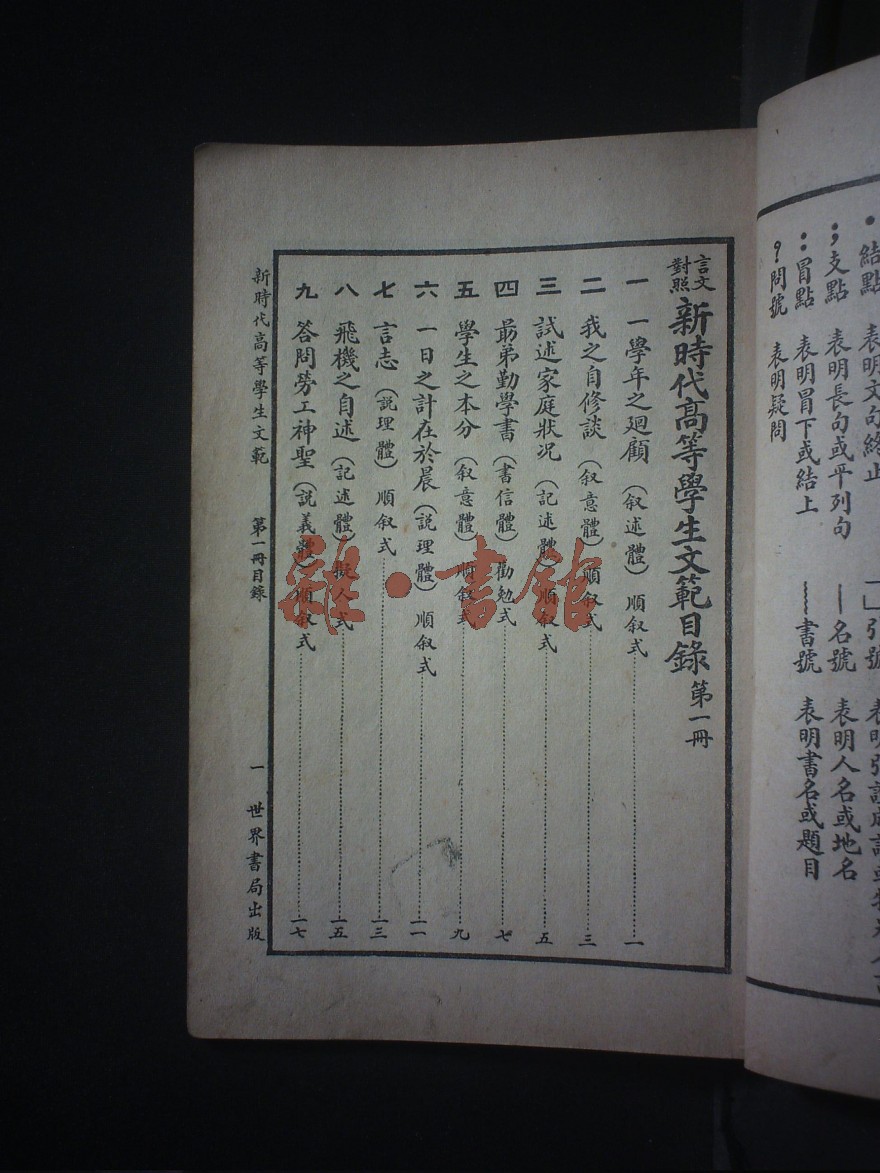 • 結點 表明文句終止
； 支點 表明長句或平列句
： 冒點 表明冒下或結上
？ 問號 表明疑問
「」引號
— 名號 表明人名或地名
﹏ 書號 表明書名或題目
言文對照 新時代高等學生文範目錄 第一冊
一 一學年之迴顧（叙述體）順叙式……一
二 我之自修談（叙意體）順叙式……三
三 試述家庭狀况（記述體）順叙式……五
四 勗弟勤學書（書信體）勸勉式……七
五 學生之本分（叙意體）順叙式……九
六 一日之計在於晨（說理體）順叙式……一一
七 言志（說理體）順叙式……一三
八 飛機之自述（記述體）擬人式……一五
九 答問勞工神聖（說義體）順叙式……一七
新時代高等學生文範 第一冊目錄 一 世界書局出版
雜•書館